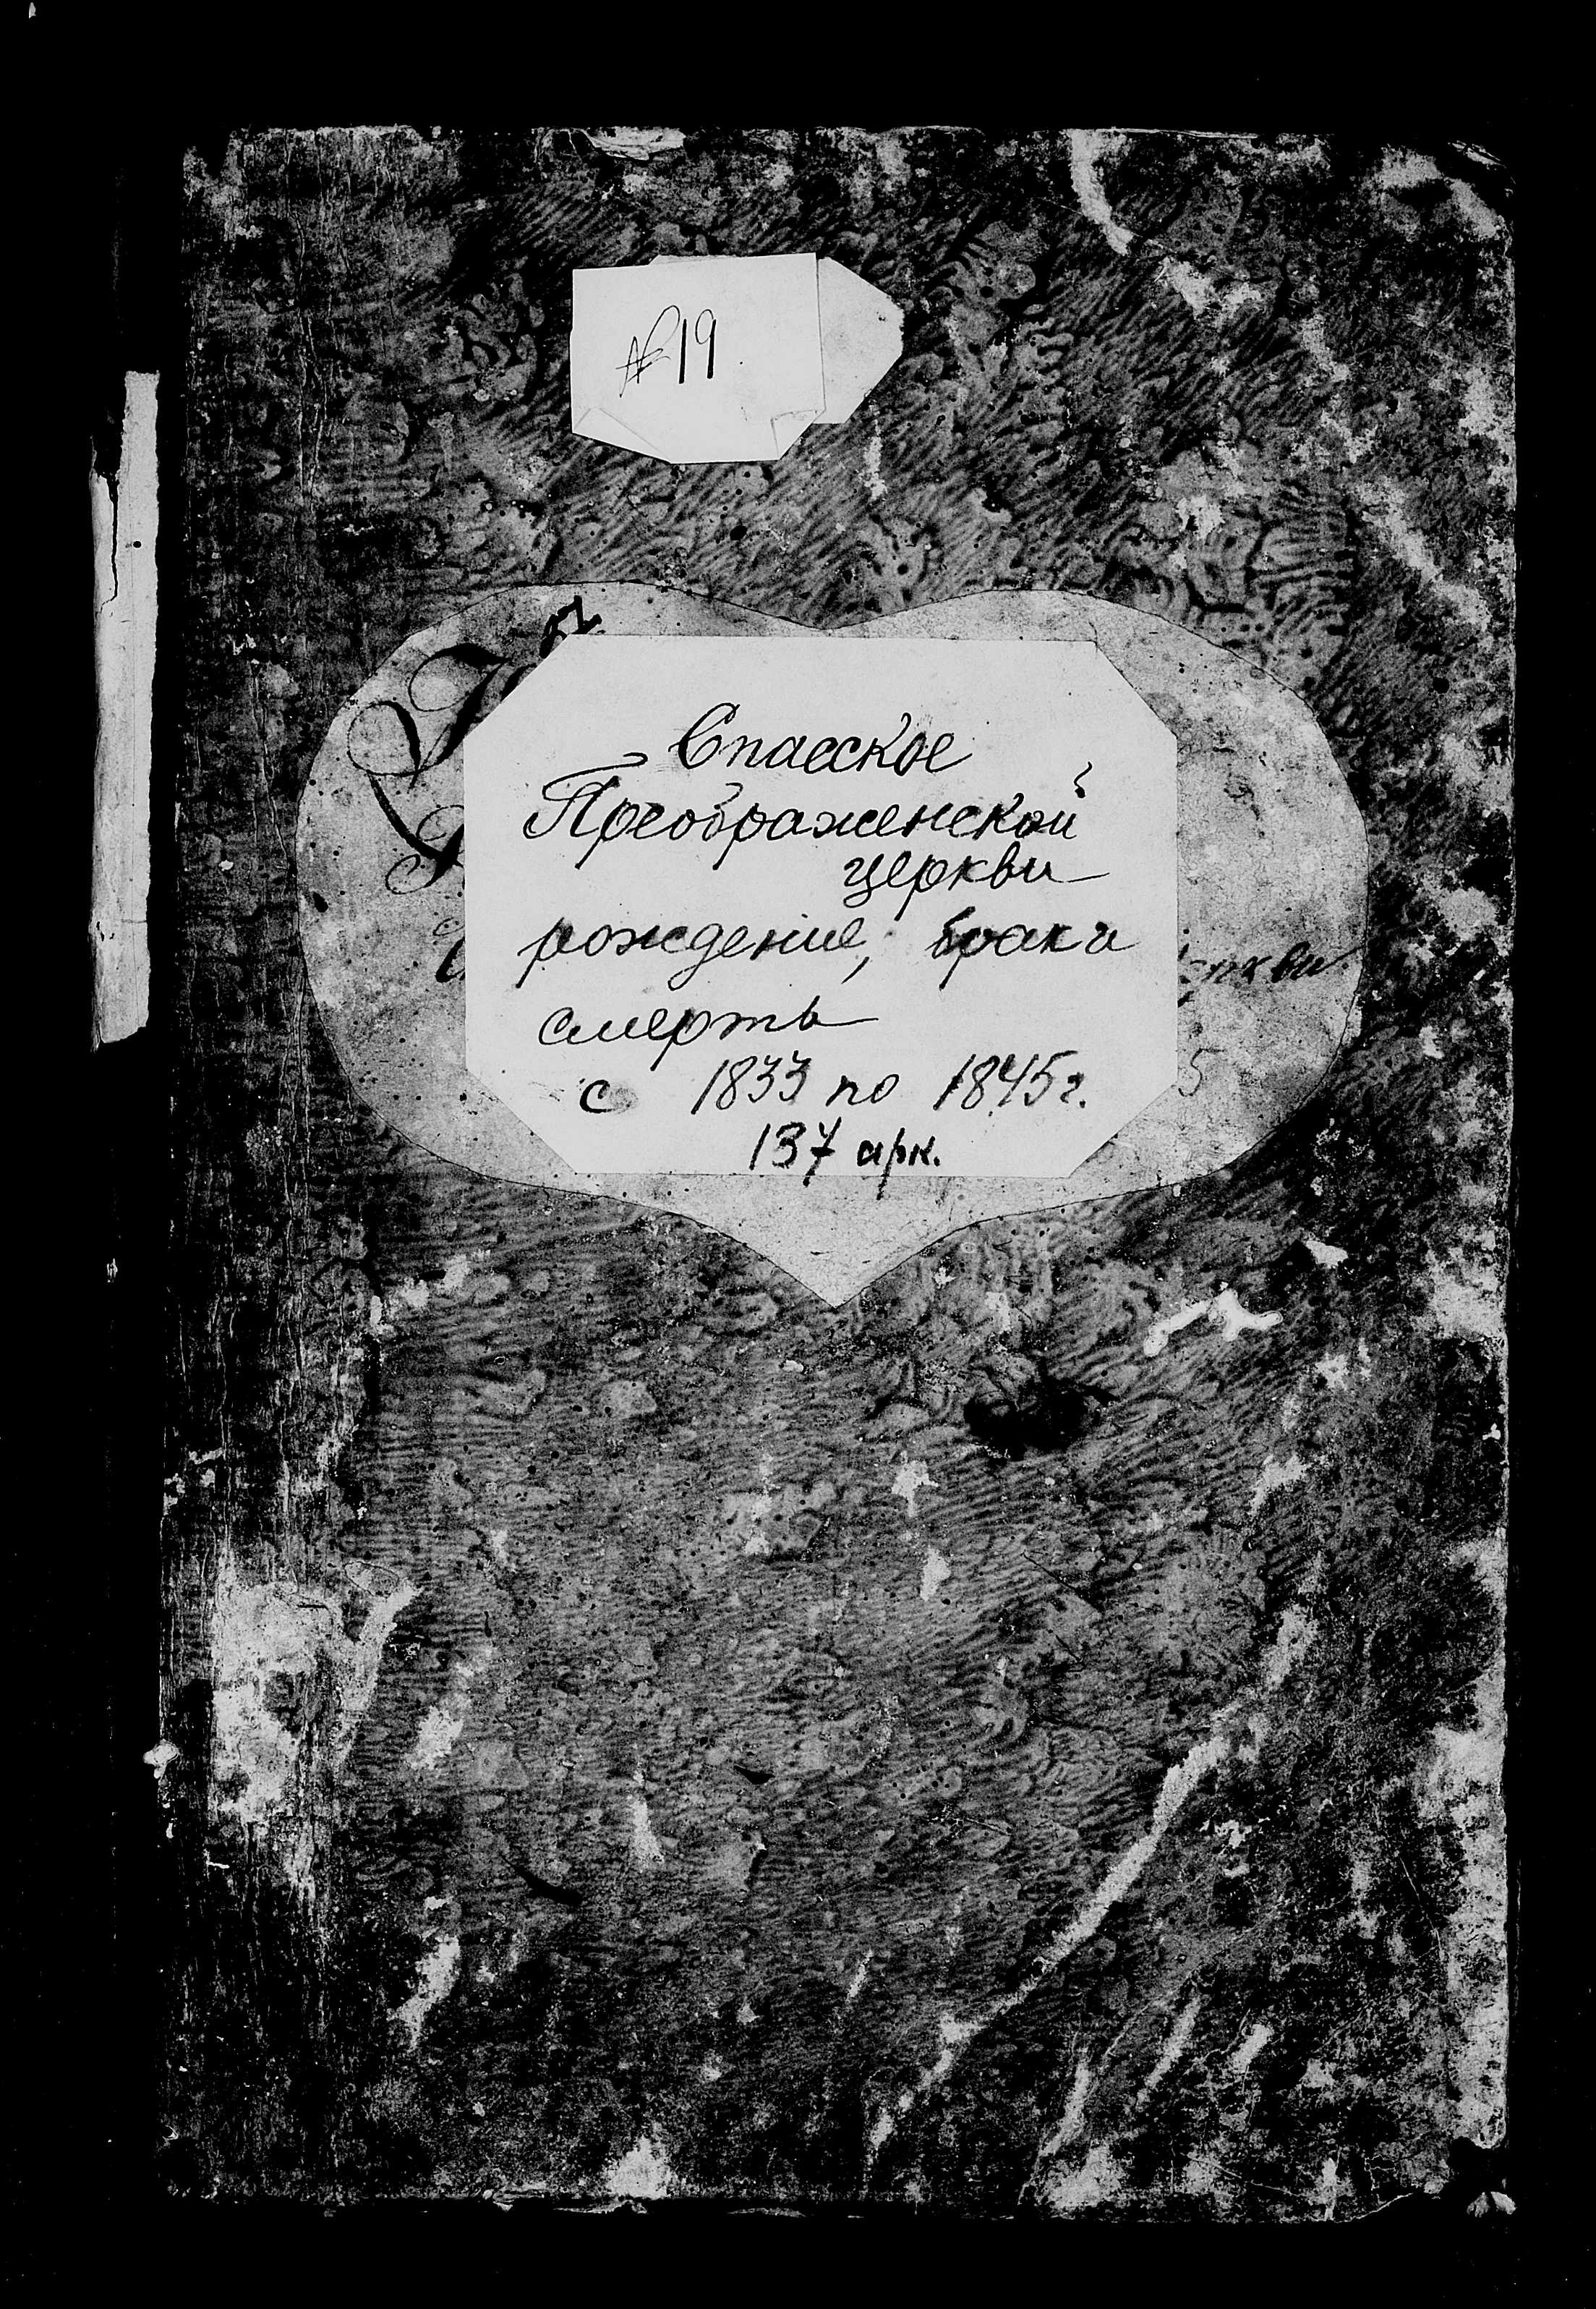 № 19
Спасское
Преображенской
церкви
рождение, брака
смерть
с 1833 по 1845 г.
137 арк.